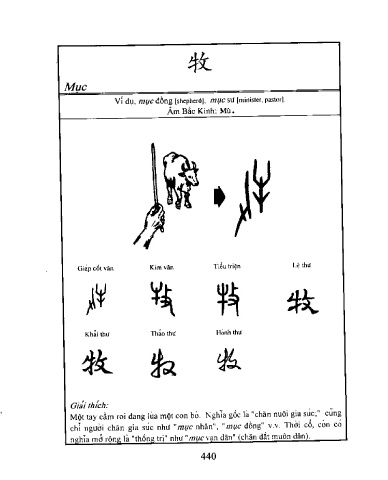 牧
Mục
Ví dụ, mục đồng [shepherd], mục sư [minister, pastor].
Âm Bắc Kinh: Mù.
Giáp cốt văn Kim văn Tiểu triện Lệ thư
牧 牧 牧 牧
Khải thư Thảo thư Hành thư
牧 牧 牧
Giải thích:
Một tay cầm roi đang lùa một con bò. Nghĩa gốc là "chăn nuôi gia súc," cũng
chỉ người chăn gia súc như "mục nhân", "mục đồng" v.v. Thời cổ, còn có
nghĩa mở rộng là "thống trị" như "mục vạn dân" (chăn dắt muôn dân).
440